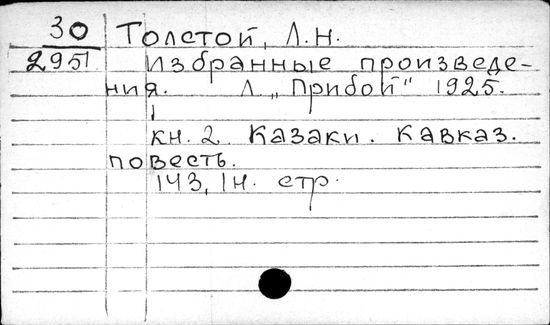 30
2951
Толстой, Л.Н.
Избранные произведе-
ния. Л. „Прибой“ 1925.
кн. 2. Казаки. Кавказ.
повесть.
143, 1н. стр.